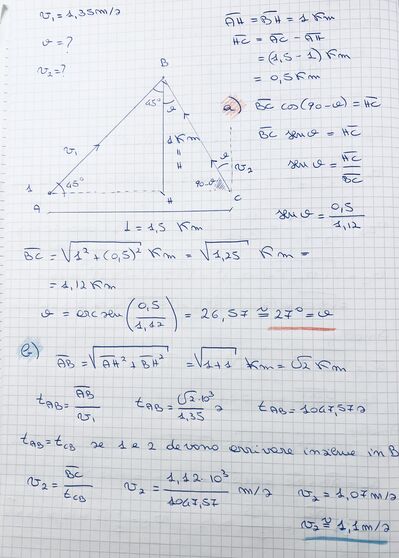 v₁ = 1,35 m/s
ϑ = ?
v₂ = ?
A̅H̅ = B̅H̅ = 1 Km
H̅C̅ = A̅C̅ - A̅H̅
= (1,5 - 1) Km
= 0,5 Km
B
45° ϑ
v₁
1 Km
=
H
ϑ
v₂
1
45°
90-ϑ
A H C
1 = 1,5 Km
a) B̅C̅ cos(90-ϑ) = H̅C̅
B̅C̅ sen ϑ = H̅C̅
sen ϑ = H̅C̅/B̅C̅
sen ϑ = 0,5/1,12
B̅C̅ = √(1² + (0,5)²) Km = √1,25 Km =
= 1,12 Km
ϑ = arcsen(0,5/1,12) = 26,57 ≅ 27° = ϑ
b) A̅B̅ = √(A̅H̅² + B̅H̅²) = √(1+1) Km = √2 Km
t_AB = A̅B̅/v₁ t_AB = √2·10³/1,35 s t_AB = 1047,57 s
t_AB = t_CB se 1 e 2 devono arrivare insieme in B
v₂ = B̅C̅/t_CB v₂ = 1,12·10³/1047,57 m/s v₂ = 1,07 m/s
v₂ ≅ 1,1 m/s